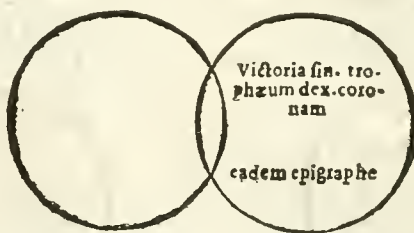 Victoria sin. tro-
phæum dex. coro-
nam
eadem epigraphe